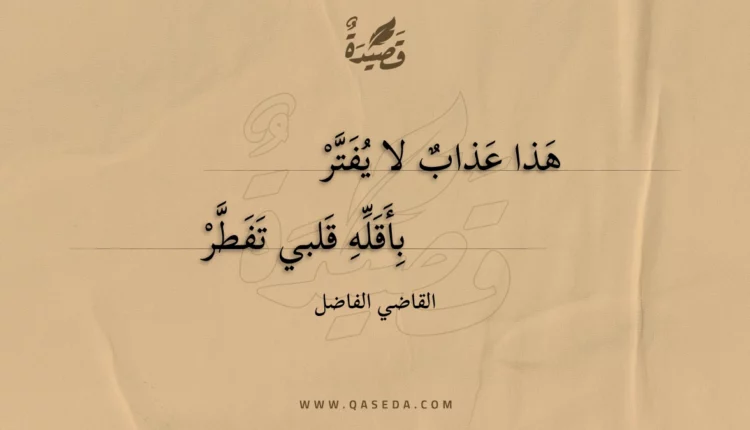 قَصِيدَةٌ
هَذا عَذابٌ لا يُفَتَّرْ
بِأَقَلِّهِ قَلبي تَفَطَّرْ
القاضي الفاضل
WWW.QASEDA.COM